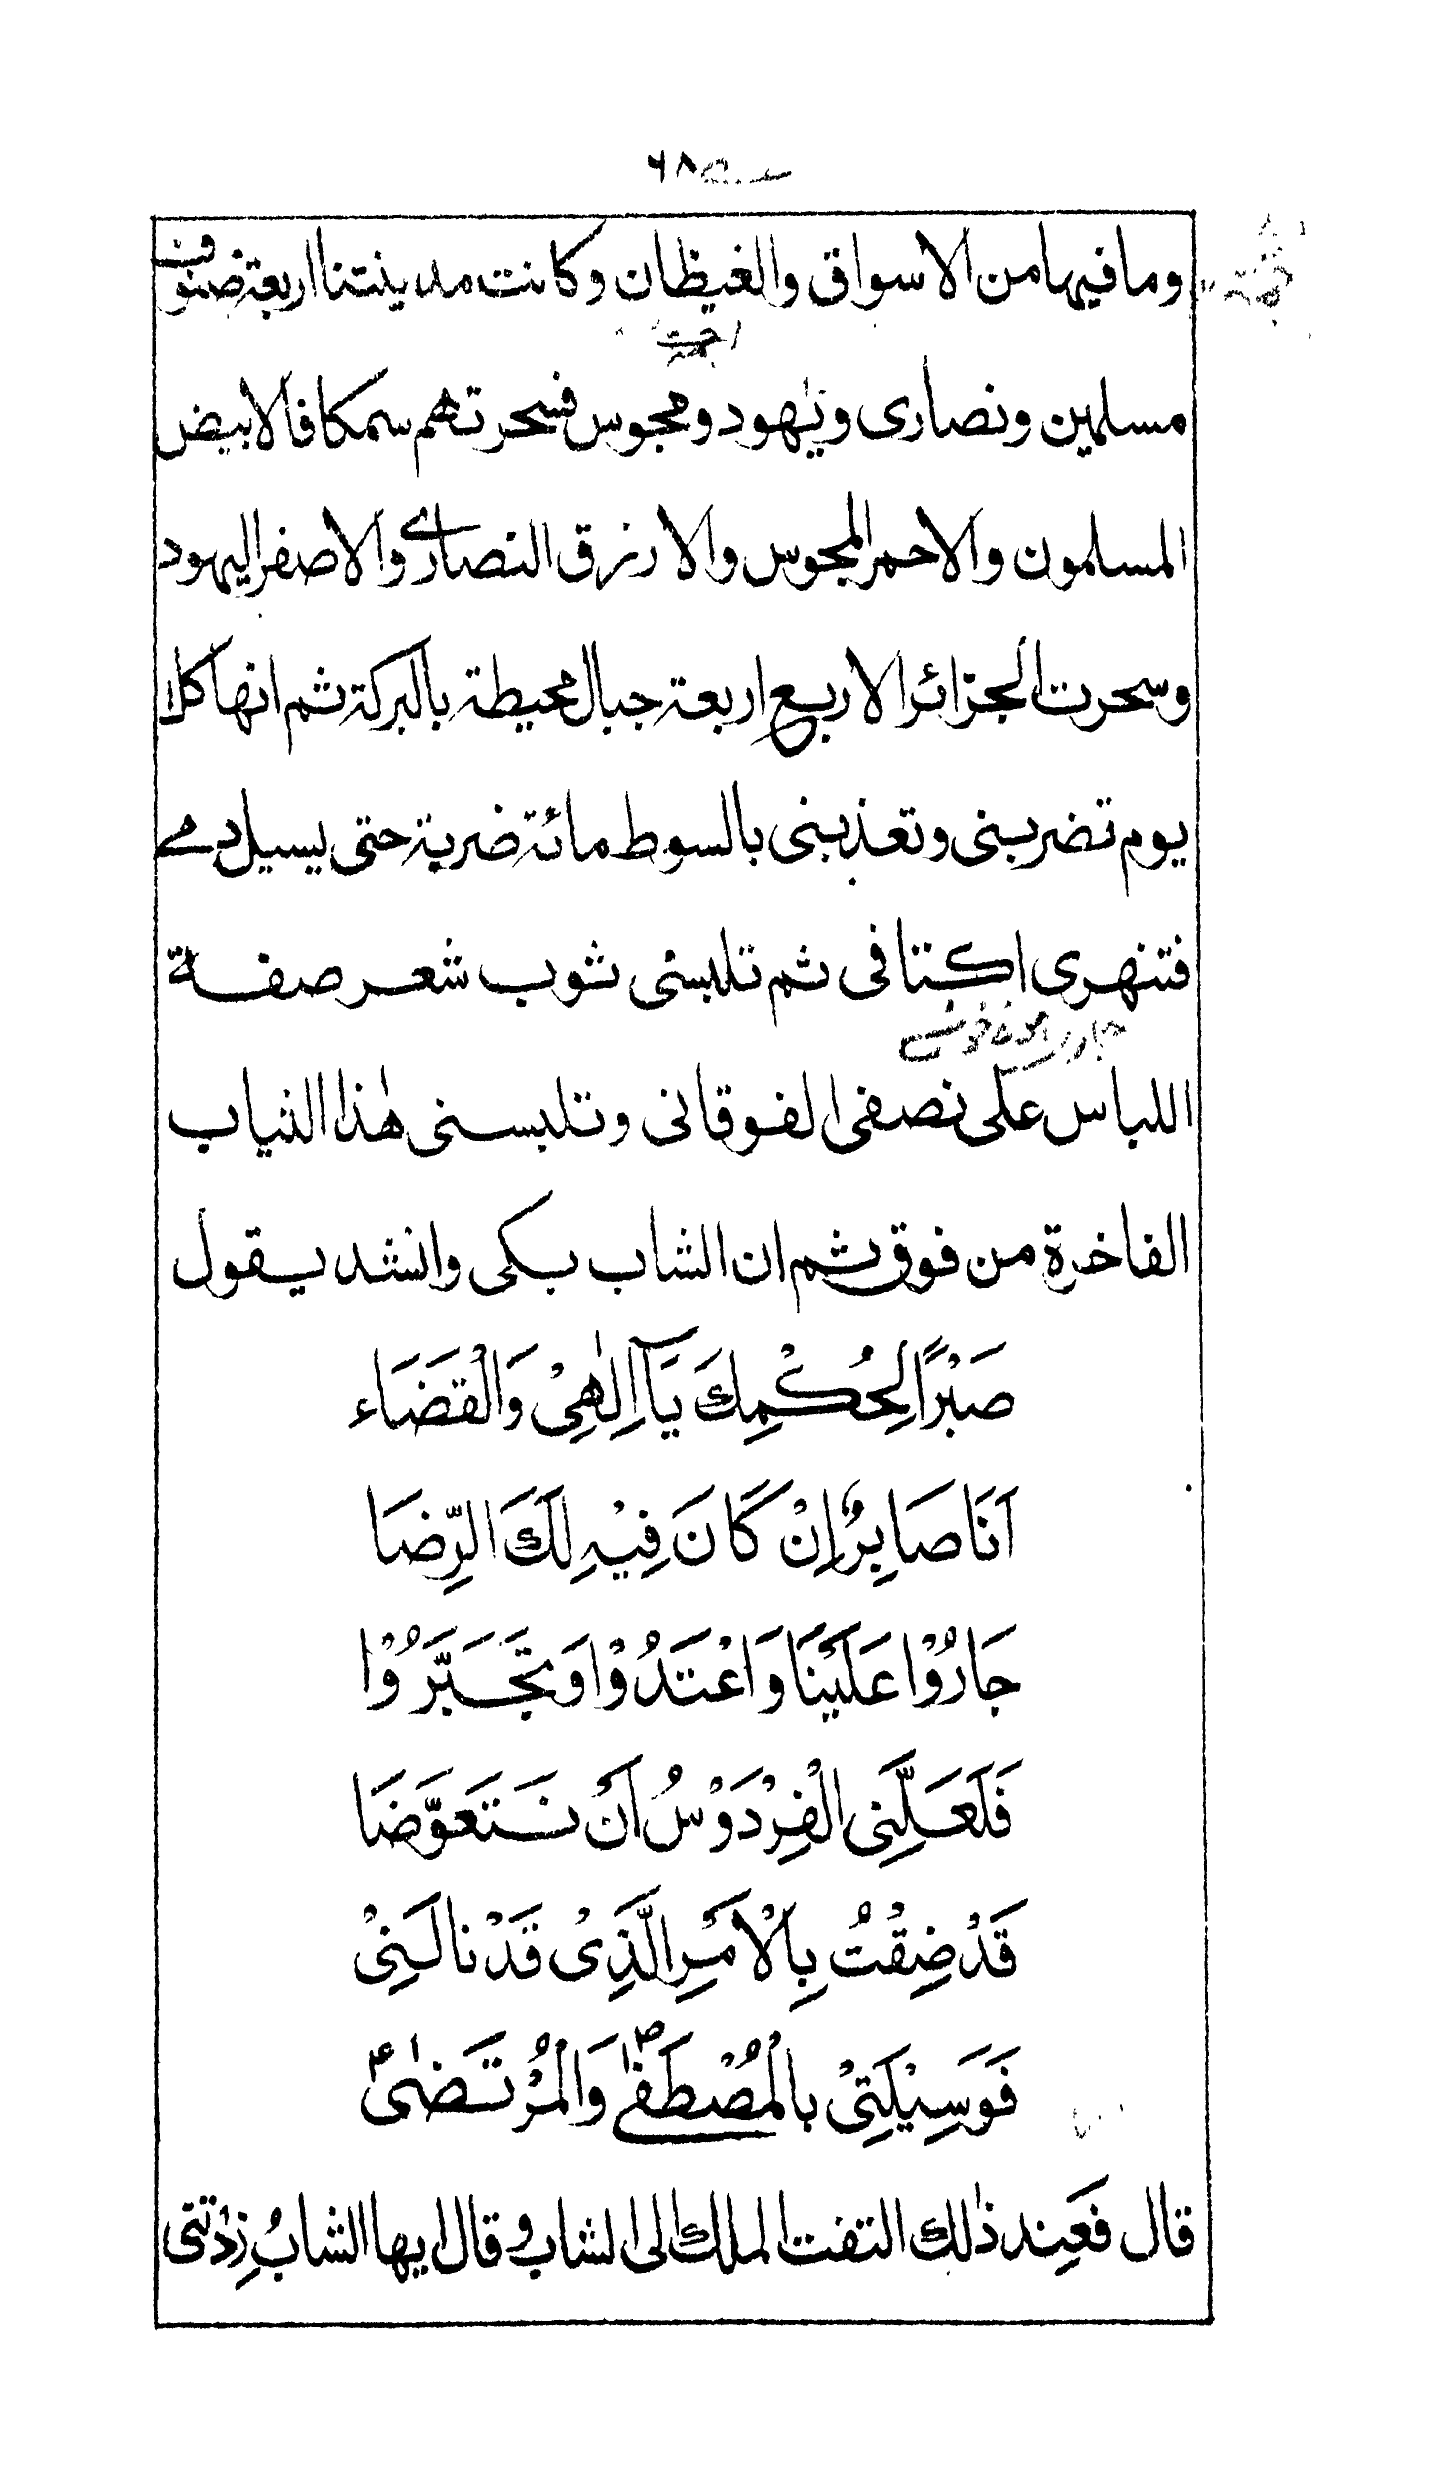 ٦٨
وما فيها من الاسواق والغيظان وكانت مدينتنا اربعة صنوف
مسلمين ونصارى ويهود ومجوس فسحرتهم سمكا فالابيض
المسلمون والاحمر المجوس والازرق النصارى والاصفر اليهود
وسحرت الجزائر الاربع اربعة جبال محيطة بالبركة ثم انها كلا
يوم تضربنى وتعذبنى بالسوط مائة ضربة حتى يسيل دمے
فتنهرى اكتافى ثم تلبسنى ثوب شعر صفة
اللباس على نصفى الفوقانى وتلبسنى هٰذا الثياب
الفاخرة من فوق ثم ان الشاب بكى وانشد يقول
صَبْرًا لِحُكْمِكَ يَآ اِلٰهِىْ وَالْقَضَاء
اَنَا صَابِرٌ اِنْ كَانَ فِيْهِ لَكَ الرِّضَا
جَارُوْا عَلَيْنَا وَاعْتَدُوْا وَتَجَبَّرُوْا
فَلَعَلَّنِى الْفِرْدَوْسُ اَنْ نَتَعَوَّضَا
قَدْ ضِقْتُ بِالْاَمْرِ الَّذِىْ قَدْ نَالَنِىْ
فَوَسِيْلَتِىْ بالْمُصْطَفٰےؐ وَالْمُرْتَضٰىؑ
قال فَعِند ذٰلك التفت الملك الى الشاب وقال ايها الشابُ زِدْتنى